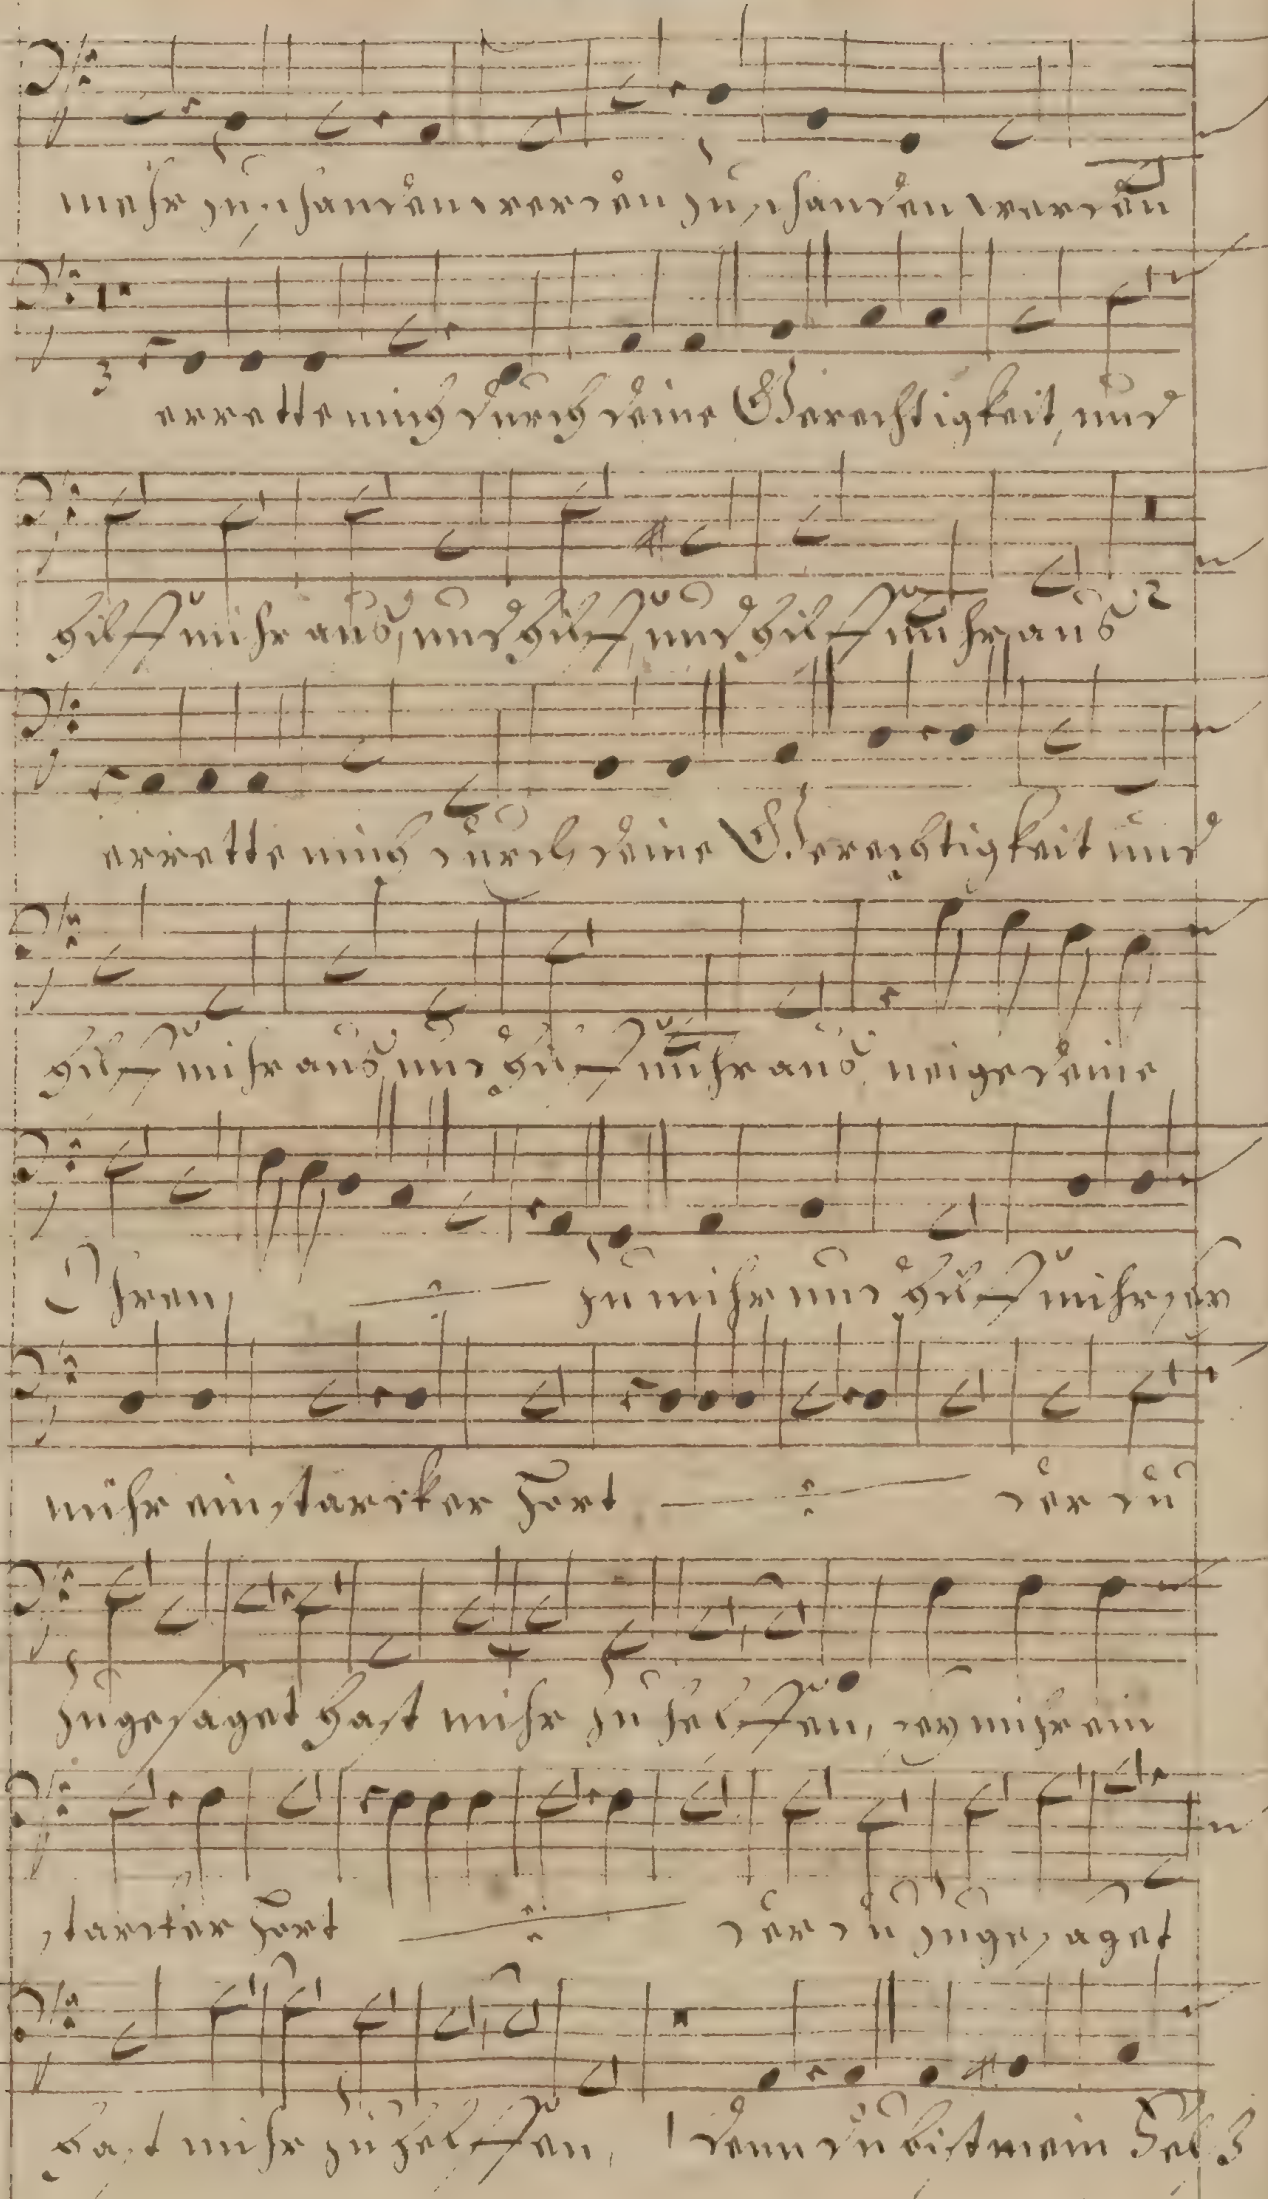 mehr zu schanden werden zu schanden werden
3
errette mich durch deine Gerechtigkeit, und
hilff mihr aus, und hilff, und hilff mihr aus 2
errette mich durch deine Gerechtigkeit und
hilff mihr aus, und hilff mihr aus, neige deine
Ohren, zu mihr und hilff mihr, sey
mihr ein starcker Hort der du
zugesaget hast mihr zu helffen, sey mihr ein
starcker Hort der du zugesaget
hast mihr zu helffen, denn du bist mein Felß